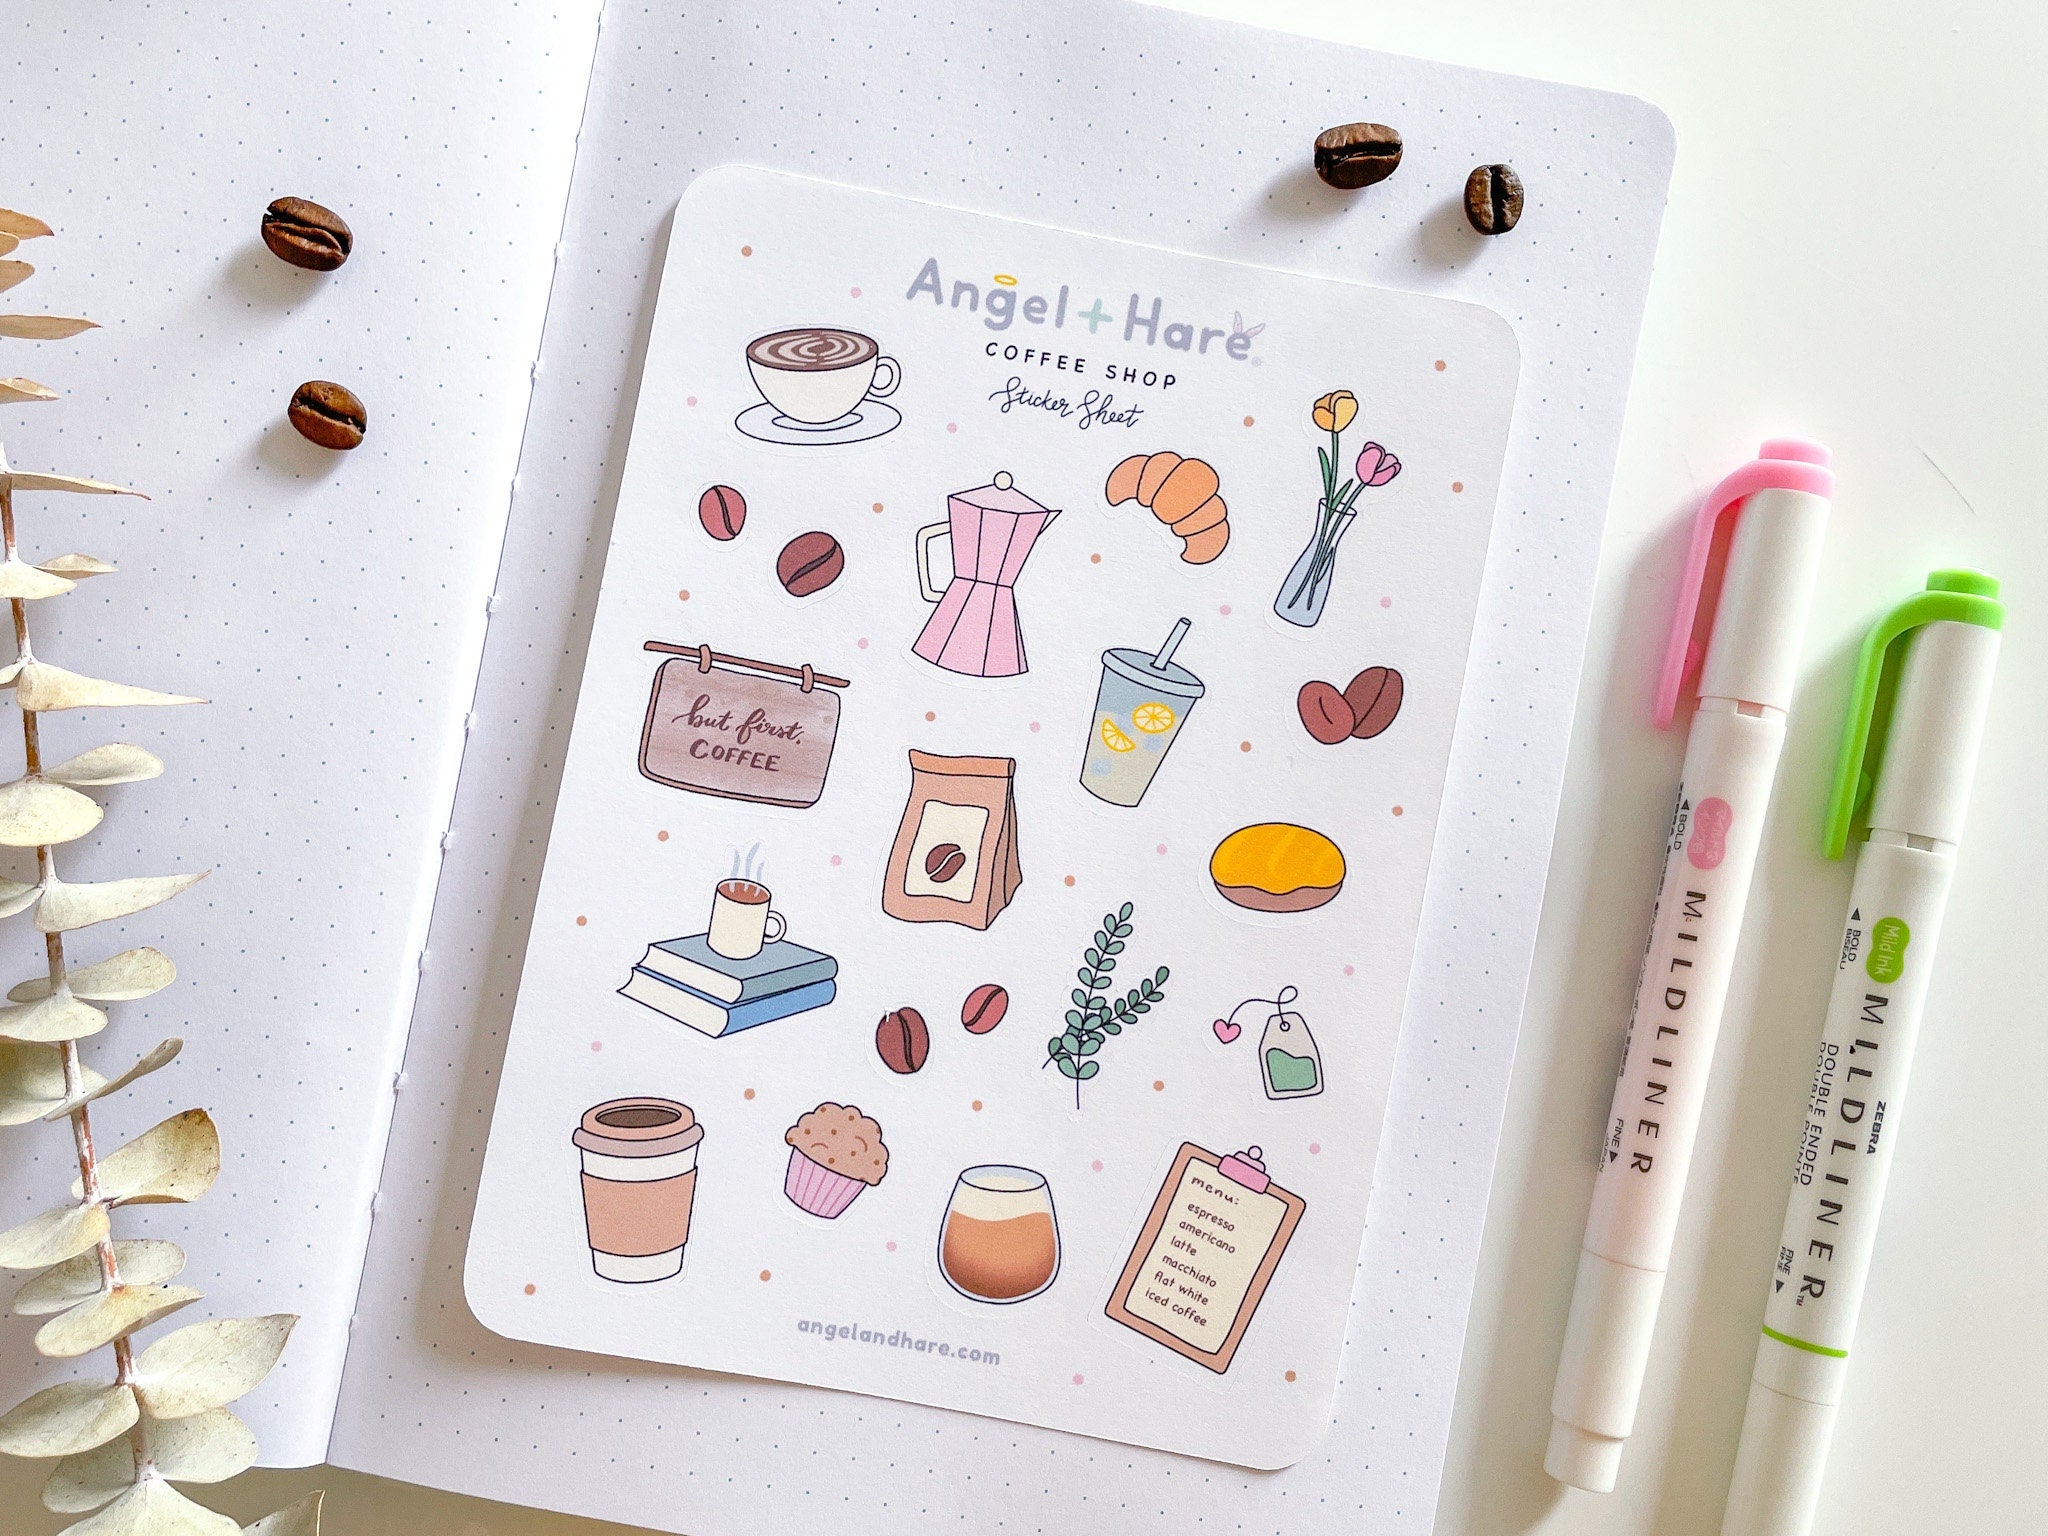 Angel + Hare
COFFEE SHOP
Sticker Sheet
but first,
COFFEE
menu:
espresso
americano
latte
macchiato
flat white
iced coffee
angelandhare.com
BOLD
MILDLINER
FINE
Mild Ink
BOLD
BISEAU
MILDLINER™
ZEBRA
DOUBLE ENDED
DOUBLE POINTE
FINE